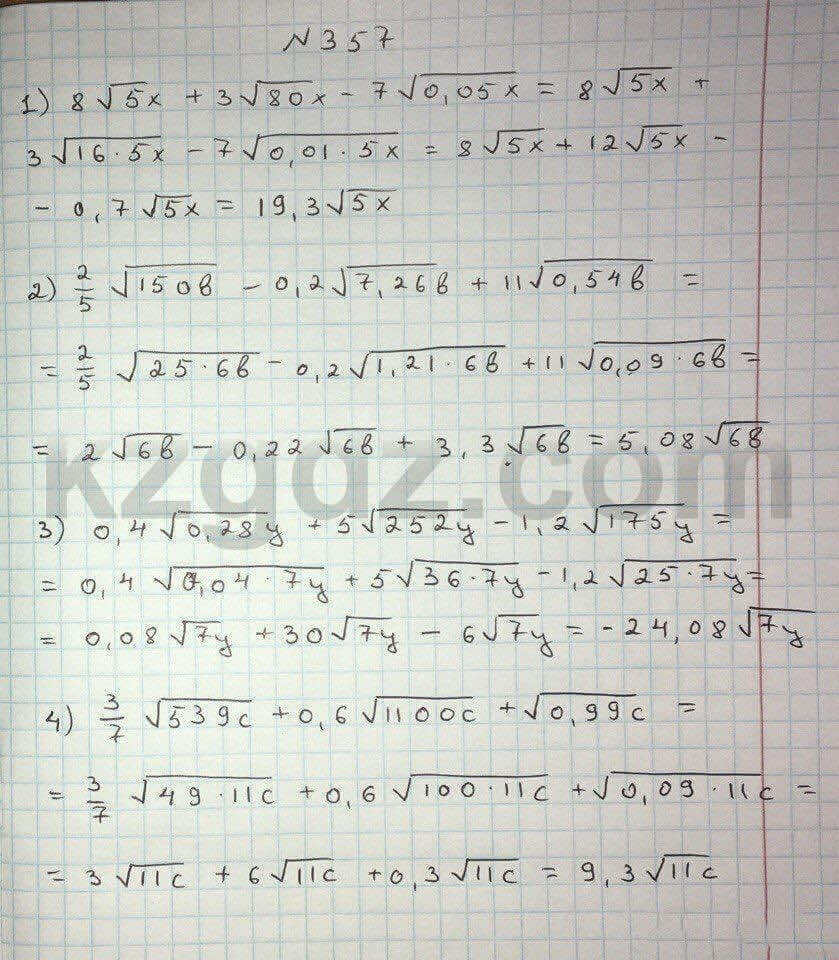 №357
1) 8√5x + 3√80x - 7√0,05x = 8√5x +
3√16·5x - 7√0,01·5x = 8√5x + 12√5x -
- 0,7√5x = 19,3√5x
2) 2/5 √150в - 0,2√7,26в + 11√0,54в =
= 2/5 √25·6в - 0,2√1,21·6в + 11√0,09·6в =
= 2√6в - 0,22√6в + 3,3√6в = 5,08√6в
kzgdz.com
3) 0,4√0,28y + 5√252y - 1,2√175y =
= 0,4√0,04·7y + 5√36·7y - 1,2√25·7y =
= 0,08√7y + 30√7y - 6√7y = -24,08√7y
4) 3/7 √539c + 0,6√1100c + √0,99c =
= 3/7 √49·11c + 0,6√100·11c + √0,09·11c =
= 3√11c + 6√11c + 0,3√11c = 9,3√11c